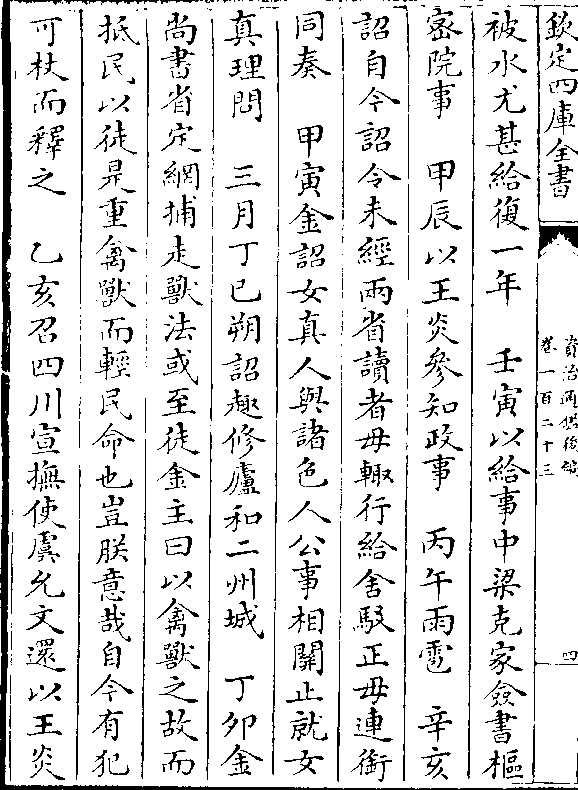 欽定四庫全書
資治通鑑後編
卷一百二十三
四
被水尤甚給復一年　壬寅以給事中梁克家僉書樞
宻院事　甲辰以王炎參知政事　丙午雨雹　辛亥
詔自今詔令未經兩省讀者毋輙行給舍駁正毋連銜
同奏　甲寅金詔女真人與諸色人公事相關止就女
真理問　三月丁巳朔詔趣修廬和二州城　丁卯金
尚書省定網捕走獸法或至徒金主曰以禽獸之故而
抵民以徒是重禽獸而輕民命也豈朕意哉自今有犯
可杖而釋之　乙亥召四川宣撫使虞允文還以王炎